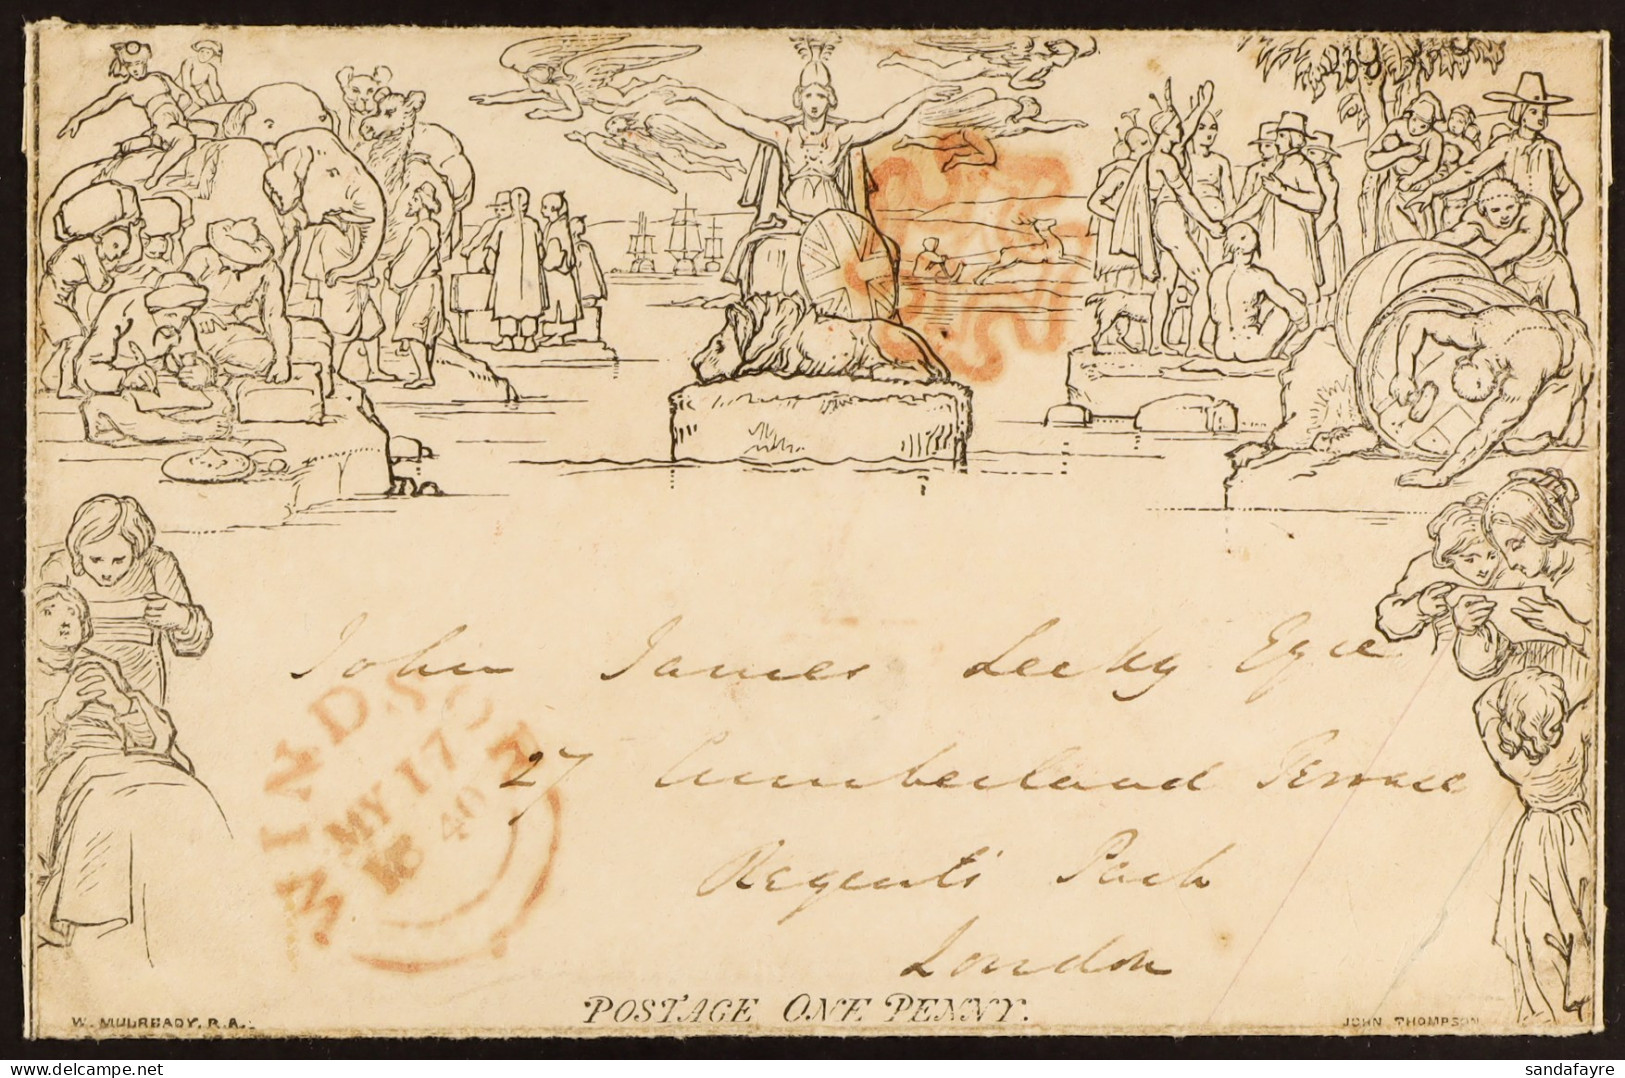 John James Lecky Esqre
27 Cumberland Terrace
Regents Park
London
WINDSOR
MY 17
1840
POSTAGE ONE PENNY.
W. MULREADY. R.A.
JOHN THOMPSON
sandafayre